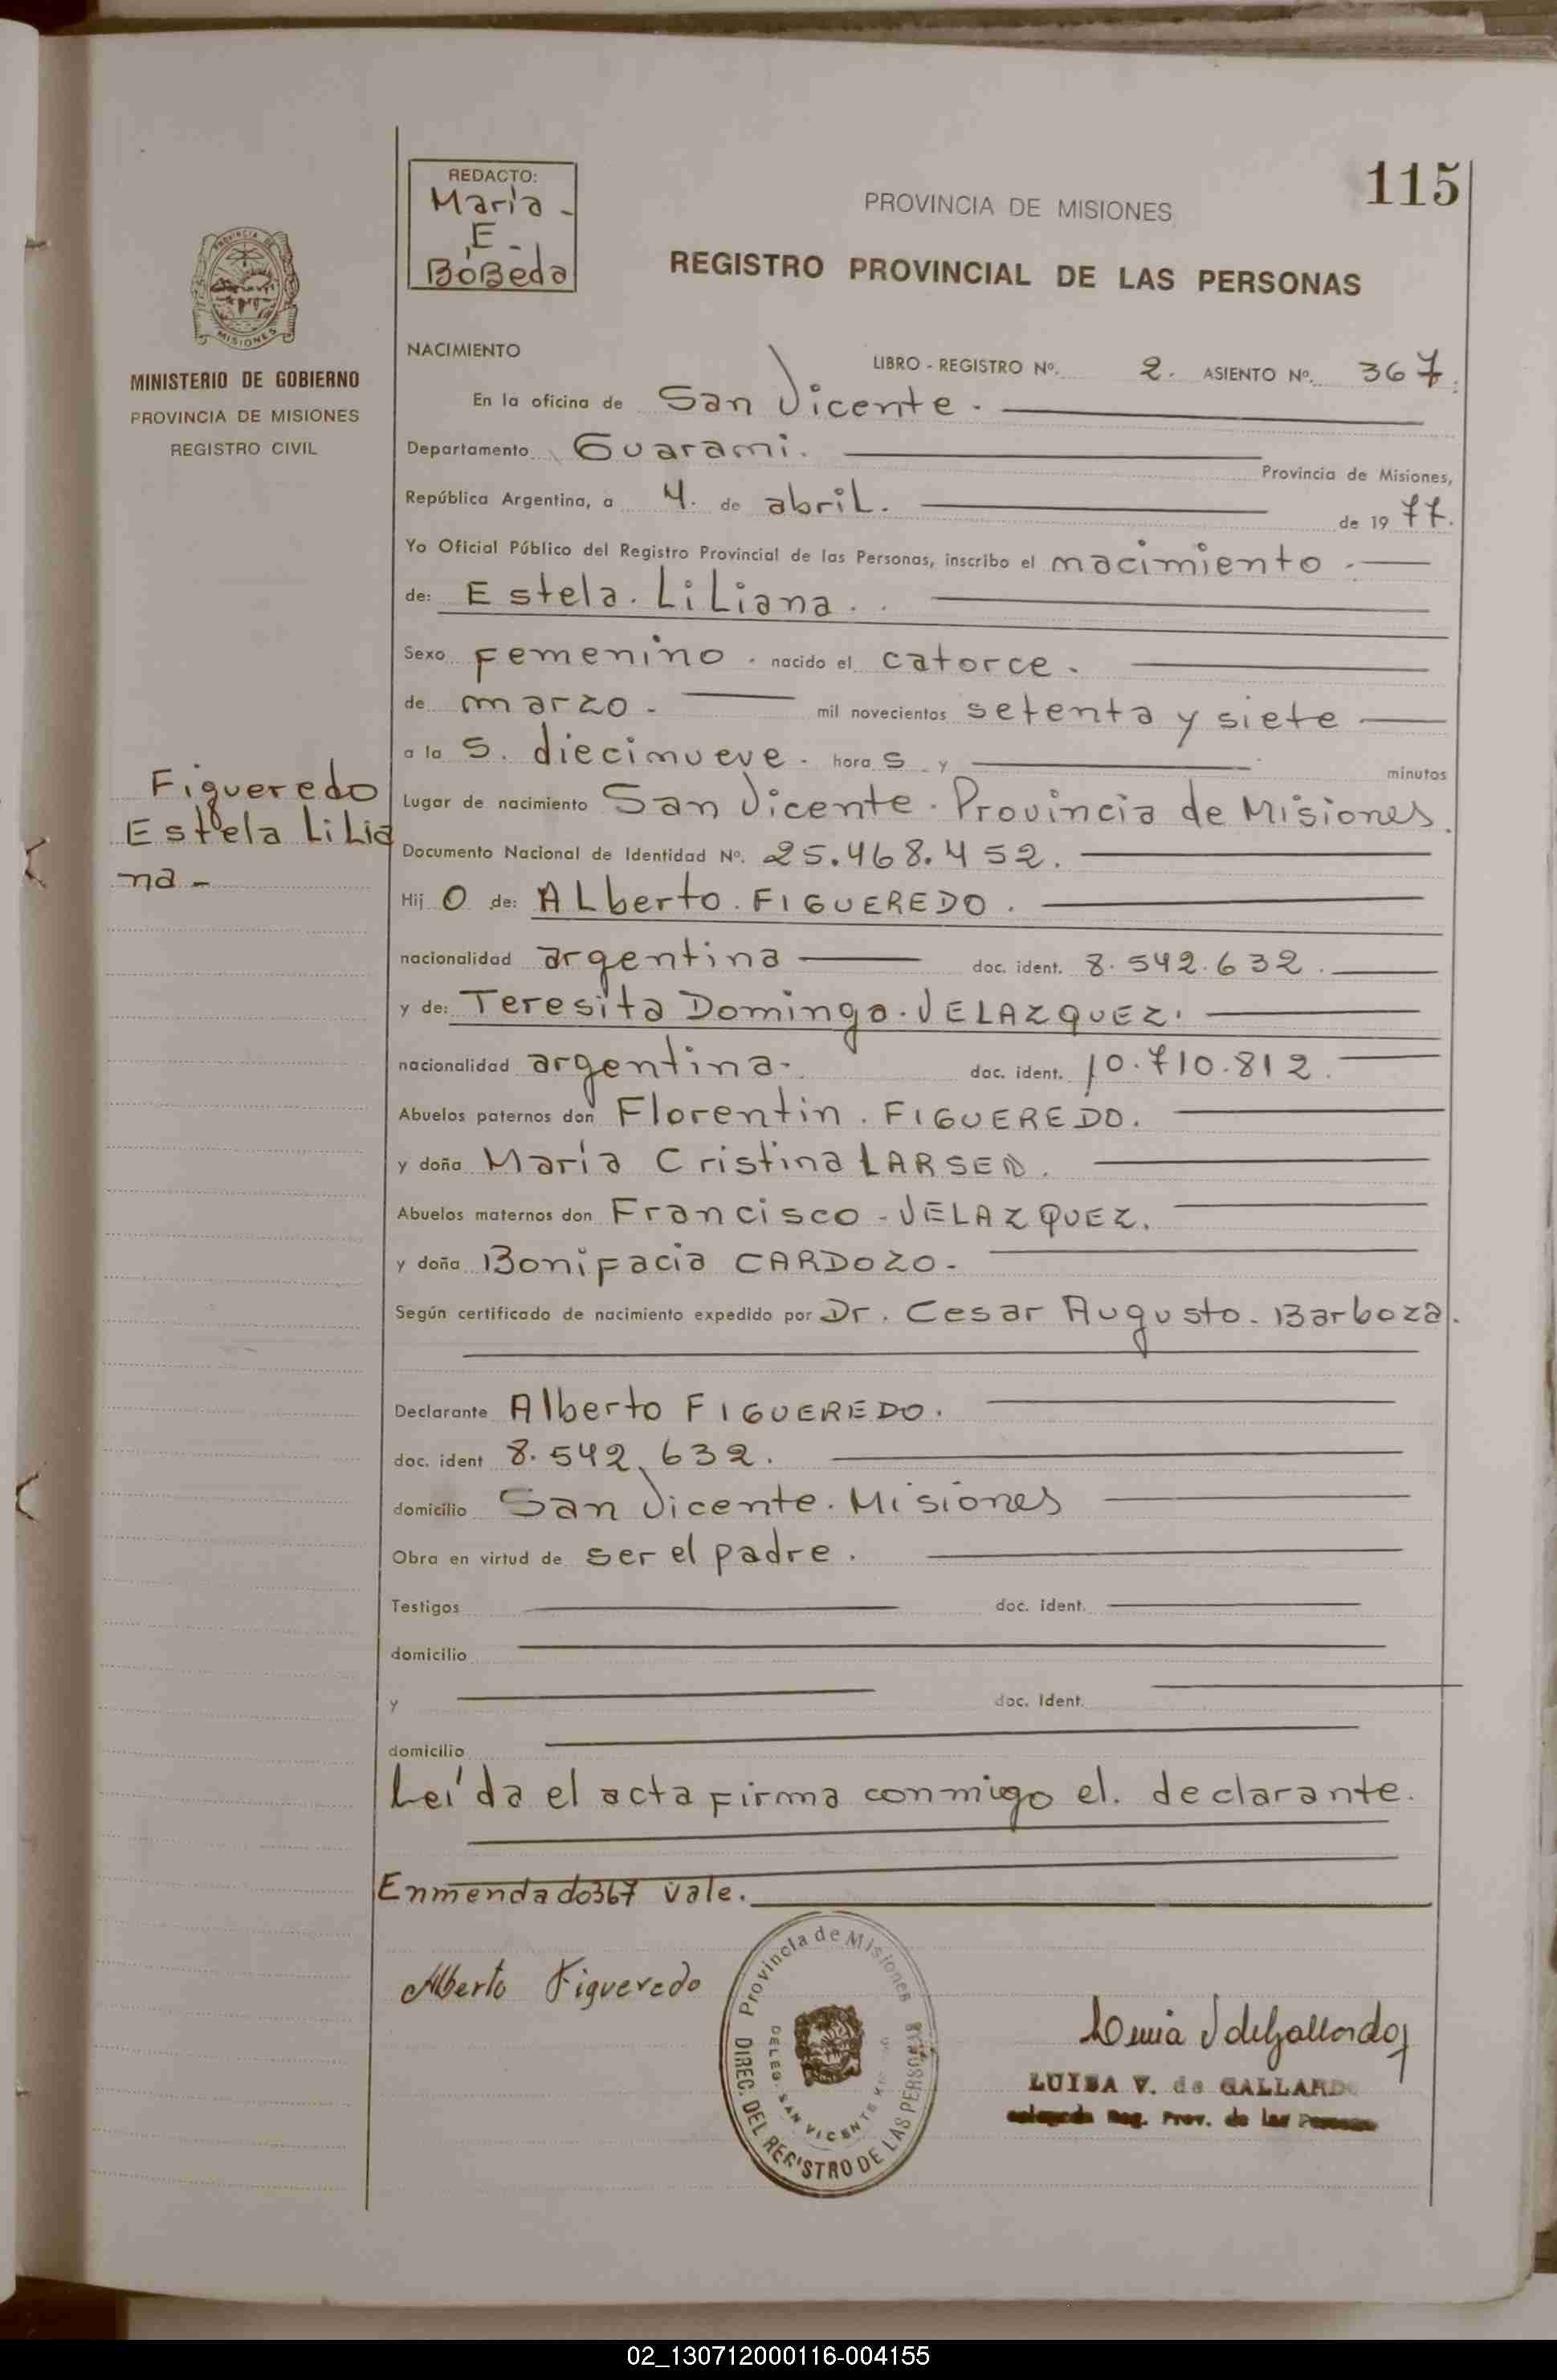 115
REDACTO:
María -
E -
BóBeda
PROVINCIA DE MISIONES
REGISTRO PROVINCIAL DE LAS PERSONAS
MISIONES
MINISTERIO DE GOBIERNO
PROVINCIA DE MISIONES
REGISTRO CIVIL
NACIMIENTO
LIBRO - REGISTRO Nº. 2. ASIENTO Nº. 367.
En la oficina de San Vicente.
Departamento Guarani.
Provincia de Misiones,
República Argentina, a 4. de abril. de 1977.
Yo Oficial Público del Registro Provincial de las Personas, inscribo el nacimiento.
de: Estela. Liliana.
Sexo femenino. nacido el catorce.
de marzo. mil novecientos setenta y siete
a la s. diecinueve. hora s y minutos
Figueredo
Estela Lilia
na -
Lugar de nacimiento San Vicente. Provincia de Misiones.
Documento Nacional de Identidad Nº. 25.468.452.
Hij o de: ALberto. FIGUEREDO.
nacionalidad argentina doc. ident. 8.542.632.
y de: Teresita Dominga. VELAZQUEZ.
nacionalidad argentina. doc. ident. 10.710.812.
Abuelos paternos don Florentin. FIGUEREDO.
y doña María Cristina LARSEN.
Abuelos maternos don Francisco - VELAZQUEZ.
y doña Bonifacia CARDOZO-
Según certificado de nacimiento expedido por Dr. Cesar Augusto. Barboza.
Declarante Alberto FIGUEREDO.
doc. ident 8.542.632.
domicilio San Vicente. Misiones
Obra en virtud de ser el padre.
Testigos doc. ident.
domicilio
y doc. Ident.
domicilio
Leída el acta firma conmigo el. declarante.
Enmendado 367 vale.
Alberto Figueredo
Provincia de Misiones
DIREC. DEL REGISTRO DE LAS PERSONAS
DELEG. SAN VICENTE
LUISA V. de GALLARDO
Reg. Prov. de las
02_130712000116-004155